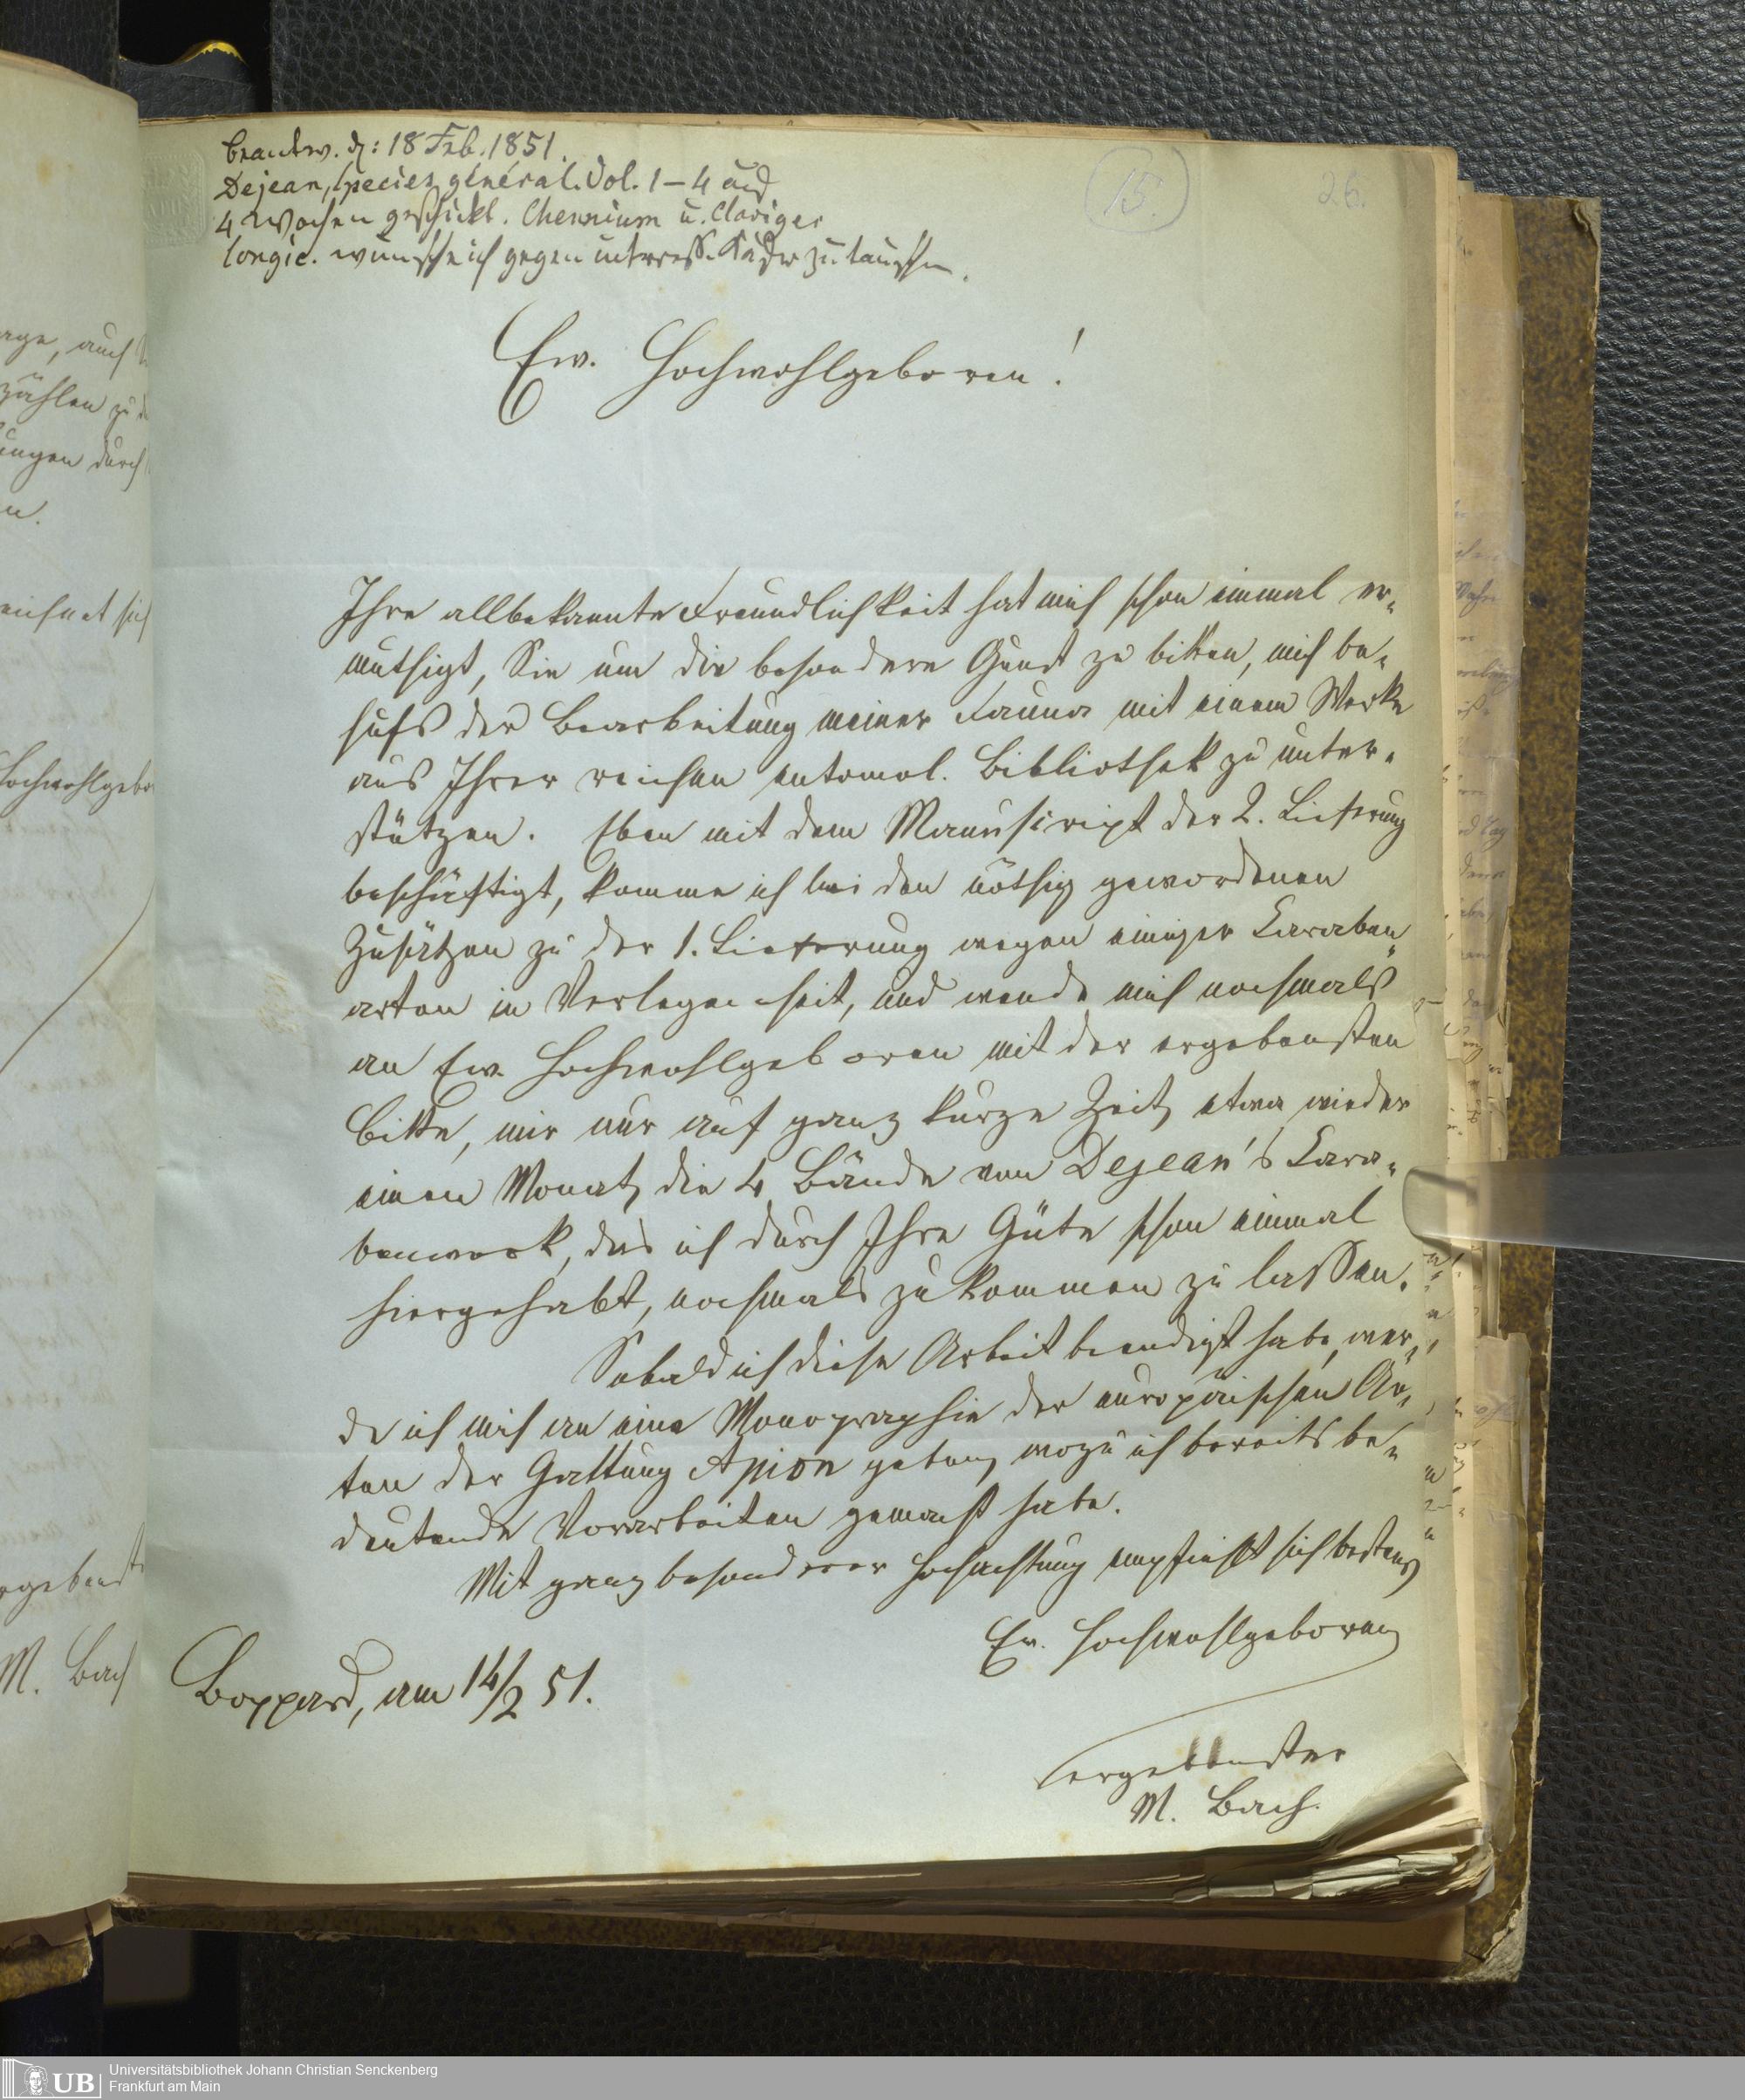 beantw. d: 18 Feb. 1851.
Dejean, Species général. Vol. 1–4 auf
4 Wochen geschickt. Chennium u. Claviger
longic. wünsche ich gegen interess. Käfer zu tauschen.
15.
26.
Ew. Hochwohlgeboren!
Ihre allbekannte Freundlichkeit hat mich schon einmal er-
muthigt, Sie um die besondere Gunst zu bitten, mich be-
hufs der Bearbeitung meiner Fauna mit einem Werke
aus Ihrer reichen entomol. Bibliothek zu unter-
stützen. Eben mit dem Manuscript der 2. Lieferung
beschäftigt, komme ich bei den nöthig gewordenen
Zusätzen zu der 1. Lieferung wegen einiger Caraben-
arten in Verlegenheit, und wende mich nochmals
an Ew. Hochwohlgeboren mit der ergebensten
Bitte, mir nur auf ganz kurze Zeit, etwa wieder
einen Monat, die 4 Bände von Dejean's Cara-
benwerk, das ich durch Ihre Güte schon einmal
hiergehabt, nochmals zukommen zu lassen.
Sobald ich diese Arbeit beendigt habe, wer-
de ich mich an eine Monographie der europäischen Ar-
ten der Gattung Apion geben, wozu ich bereits be-
deutende Vorarbeiten gemacht habe.
Mit ganz besonderer Hochachtung empfiehlt sich bestens
Ew. Hochwohlgeboren
Boppard, am 14/2 51.
ergebenster
M. Bach.
age, auch
zählen zu
ungen durch
en.
eichnet sich
Hochwohlgebo
rgebenst
M. Bach
UB
Universitätsbibliothek Johann Christian Senckenberg
Frankfurt am Main